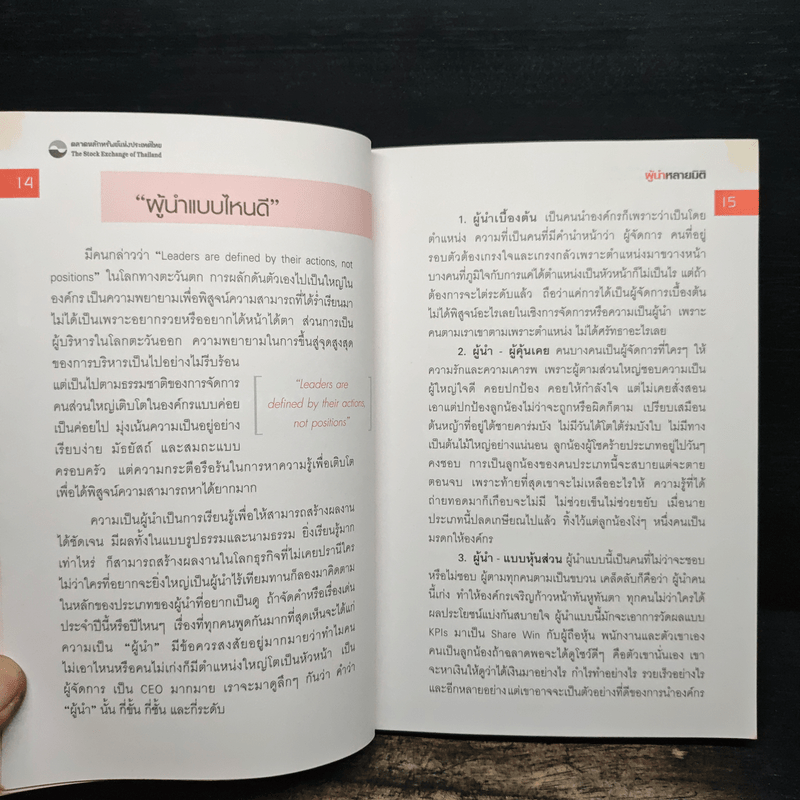 ตลาดหลักทรัพย์แห่งประเทศไทย
The Stock Exchange of Thailand
14
“ผู้นำแบบไหนดี”
มีคนกล่าวว่า “Leaders are defined by their actions, not
positions” ในโลกทางตะวันตก การผลักดันตัวเองไปเป็นใหญ่ใน
องค์กร เป็นความพยายามเพื่อพิสูจน์ความสามารถที่ได้ร่ำเรียนมา
ไม่ได้เป็นเพราะอยากรวยหรืออยากได้หน้าได้ตา ส่วนการเป็น
ผู้บริหารในโลกตะวันออก ความพยายามในการขึ้นสู่จุดสูงสุด
ของการบริหารเป็นไปอย่างไม่รีบร้อน
แต่เป็นไปตามธรรมชาติของการจัดการ
คนส่วนใหญ่เติบโตในองค์กรแบบค่อย
เป็นค่อยไป มุ่งเน้นความเป็นอยู่อย่าง
เรียบง่าย มัธยัสถ์ และสมถะแบบ
ครอบครัว แต่ความกระตือรือร้นในการหาความรู้เพื่อเติบโต
เพื่อได้พิสูจน์ความสามารถหาได้ยากมาก
“Leaders are
defined by their actions,
not positions”
ความเป็นผู้นำเป็นการเรียนรู้เพื่อให้สามารถสร้างผลงาน
ได้ชัดเจน มีผลทั้งในแบบรูปธรรมและนามธรรม ยิ่งเรียนรู้มาก
เท่าไหร่ ก็สามารถสร้างผลงานในโลกธุรกิจที่ไม่เคยปรานีใคร
ไม่ว่าใครที่อยากจะยิ่งใหญ่เป็นผู้นำไร้เทียมทานก็ลองมาคิดตาม
ในหลักของประเภทของผู้นำที่อยากเป็นดู ถ้าจัดคำหรือเรื่องเด่น
ประจำปีนี้หรือปีไหนๆ เรื่องที่ทุกคนพูดกันมากที่สุดเห็นจะได้แก่
ความเป็น “ผู้นำ” มีข้อควรสงสัยอยู่มากมายว่าทำไมคน
ไม่เอาไหนหรือคนไม่เก่งก็มีตำแหน่งใหญ่โตเป็นหัวหน้า เป็น
ผู้จัดการ เป็น CEO มากมาย เราจะมาดูลึกๆ กันว่า คำว่า
“ผู้นำ” นั้น กี่ขั้น กี่ชั้น และกี่ระดับ
ผู้นำหลายมิติ
15
1. ผู้นำเบื้องต้น เป็นคนนำองค์กรก็เพราะว่าเป็นโดย
ตำแหน่ง ความที่เป็นคนที่มีคำนำหน้าว่า ผู้จัดการ คนที่อยู่
รอบตัวต้องเกรงใจและเกรงกลัวเพราะตำแหน่งมาขวางหน้า
บางคนที่ภูมิใจกับการแค่ได้ตำแหน่งเป็นหัวหน้าก็ไม่เป็นไร แต่ถ้า
ต้องการจะไต่ระดับแล้ว ถือว่าแค่การได้เป็นผู้จัดการเบื้องต้น
ไม่ได้พิสูจน์อะไรเลยในเชิงการจัดการหรือความเป็นผู้นำ เพราะ
คนตามเราเขาตามเพราะตำแหน่ง ไม่ได้ศรัทธาอะไรเลย
2. ผู้นำ - ผู้คุ้นเคย คนบางคนเป็นผู้จัดการที่ใครๆ ให้
ความรักและความเคารพ เพราะผู้ตามส่วนใหญ่ชอบความเป็น
ผู้ใหญ่ใจดี คอยปกป้อง คอยให้กำลังใจ แต่ไม่เคยสั่งสอน
เอาแต่ปกป้องลูกน้องไม่ว่าจะถูกหรือผิดก็ตาม เปรียบเสมือน
ต้นหญ้าที่อยู่ใต้ชายคาร่มบัง ไม่มีวันได้โตได้ร่มบังใบ ไม่มีทาง
เป็นต้นไม้ใหญ่อย่างแน่นอน ลูกน้องผู้โชคร้ายประเภทอยู่ไปวันๆ
คงชอบ การเป็นลูกน้องของคนประเภทนี้จะสบายแต่จะตาย
ตอนจบ เพราะท้ายที่สุดเขาจะไม่เหลืออะไรให้ ความรู้ที่ได้
ถ่ายทอดมาก็เกือบจะไม่มี ไม่ช่วยเข็นไม่ช่วยขยับ เมื่อนาย
ประเภทนี้ปลดเกษียณไปแล้ว ทิ้งไว้แต่ลูกน้องโง่ๆ หนึ่งคนเป็น
มรดกให้องค์กร
3. ผู้นำ - แบบหุ้นส่วน ผู้นำแบบนี้เป็นคนที่ไม่ว่าจะชอบ
หรือไม่ชอบ ผู้ตามทุกคนตามเป็นขบวน เคล็ดลับก็คือว่า ผู้นำคน
นี้เก่ง ทำให้องค์กรเจริญก้าวหน้าทันหูทันตา ทุกคนไม่ว่าใครได้
ผลประโยชน์แบ่งกันสบายใจ ผู้นำแบบนี้มักจะเอาการวัดผลแบบ
KPIs มาเป็น Share Win กับผู้ถือหุ้น พนักงานและตัวเขาเอง
คนเป็นลูกน้องถ้าฉลาดพอจะได้ดูโชว์ดีๆ คือตัวเขานั่นเอง เขา
จะหาเงินให้ดูว่าได้เงินมาอย่างไร กำไรทำอย่างไร รวยเร็วอย่างไร
และอีกหลายอย่าง แต่เขาอาจจะเป็นตัวอย่างที่ดีของการนำองค์กร